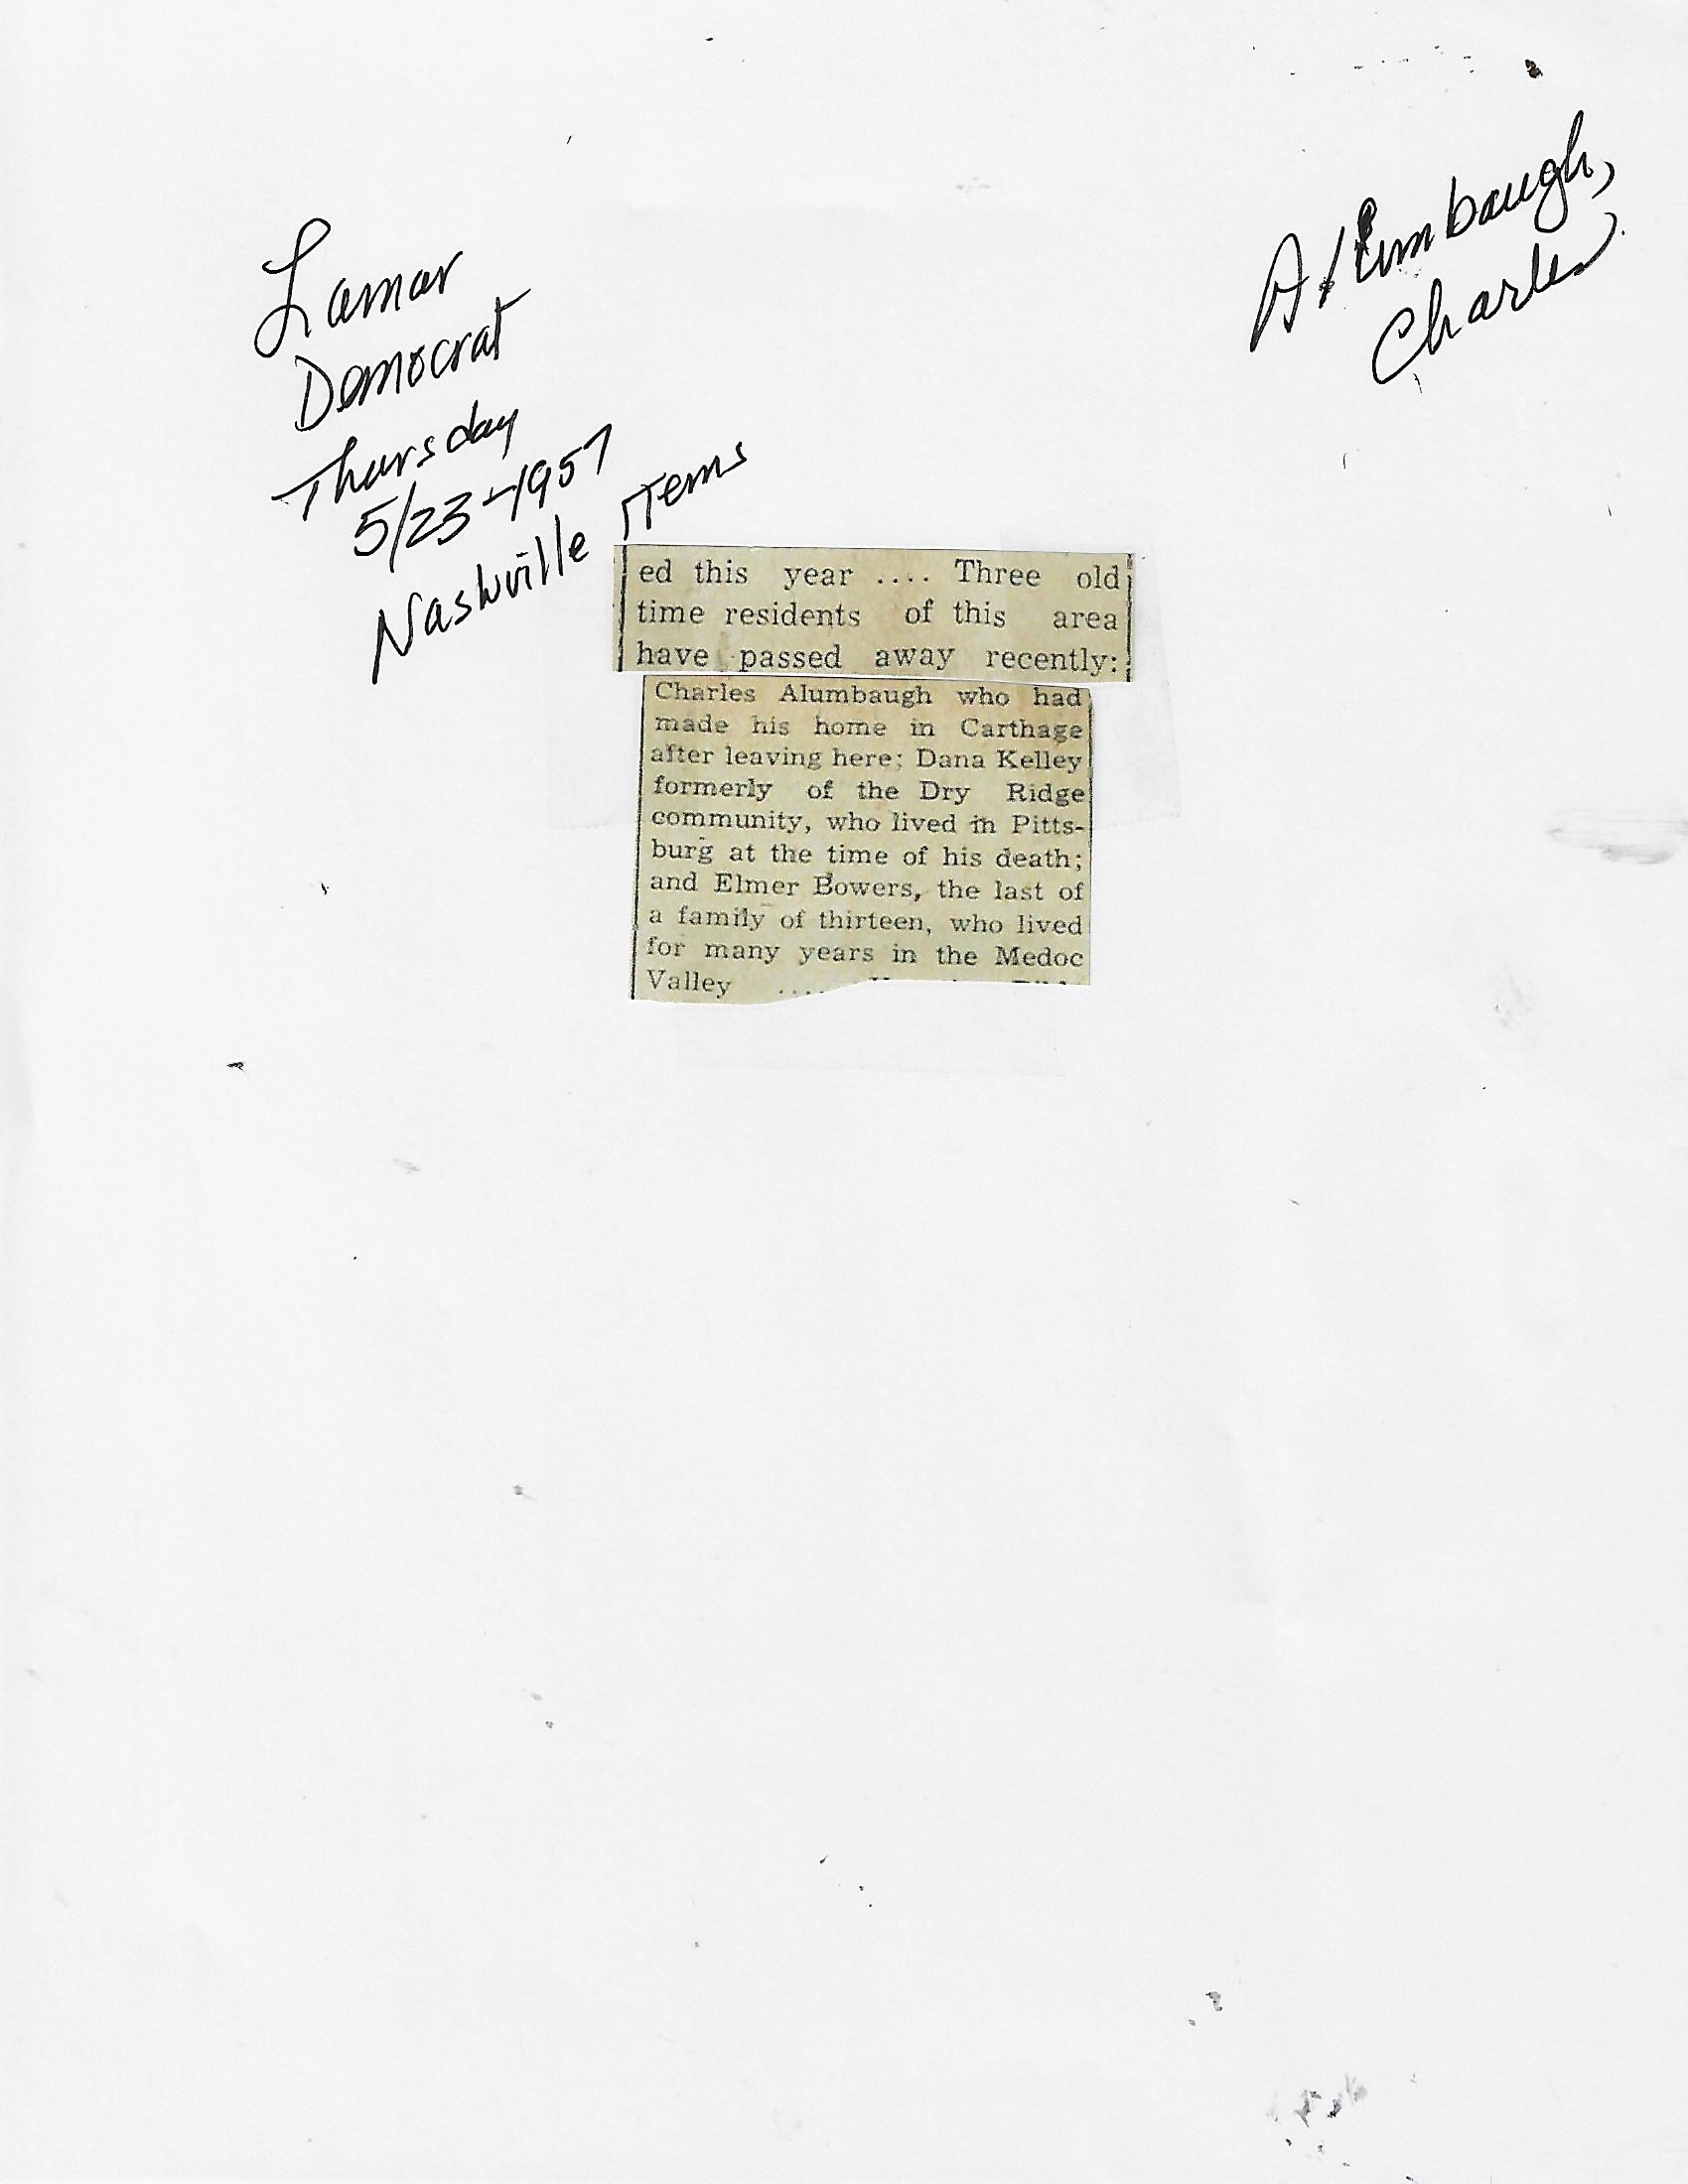 Lamar
Democrat
Thursday
5/23-1957
Nashville Items
Alumbaugh,
Charles
ed this year .... Three old
time residents of this area
have passed away recently:
Charles Alumbaugh who had
made his home in Carthage
after leaving here; Dana Kelley
formerly of the Dry Ridge
community, who lived in Pitts-
burg at the time of his death;
and Elmer Bowers, the last of
a family of thirteen, who lived
for many years in the Medoc
Valley ....